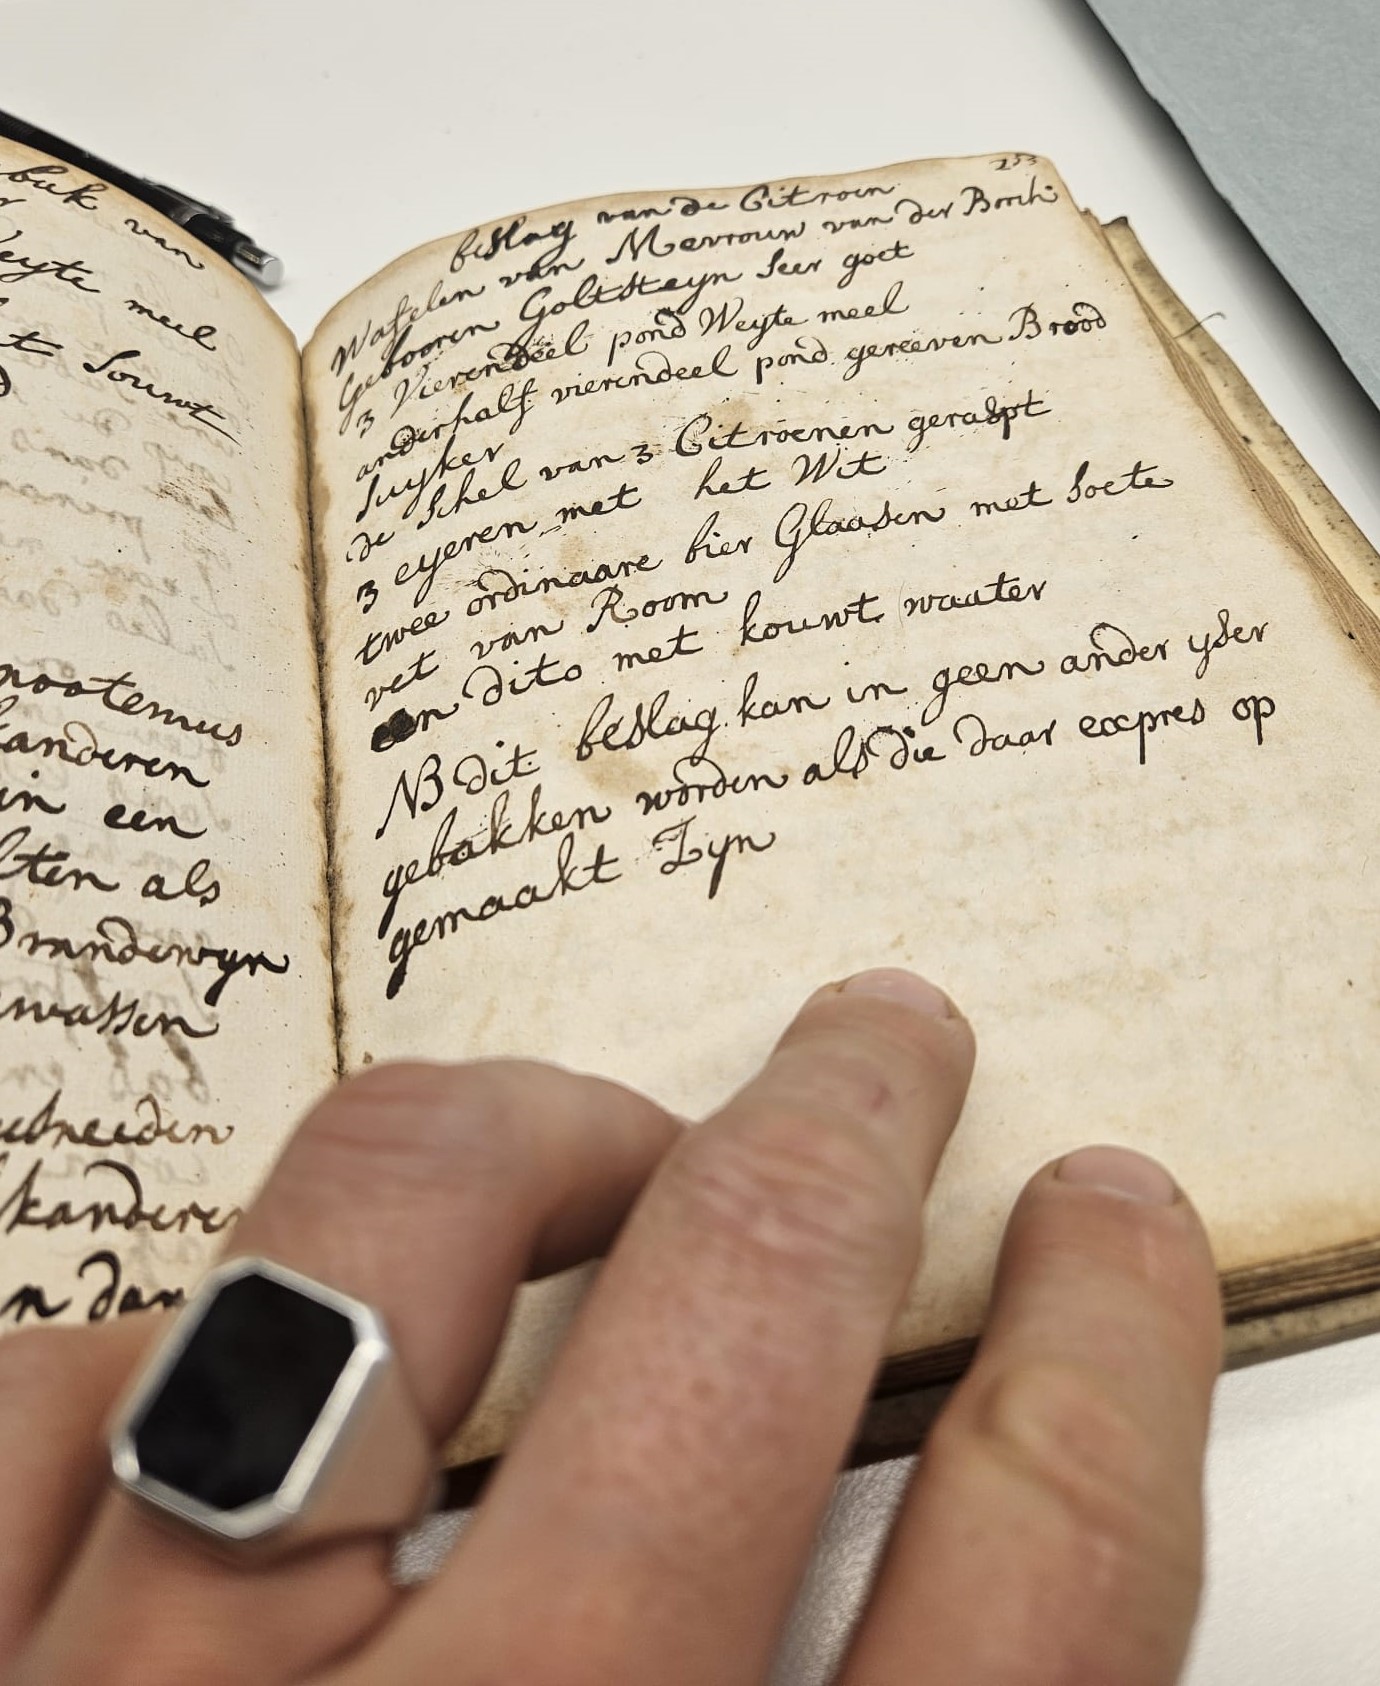 buk van
Weyte meel
t Souwt
nootemus
kanderen
in een
lten als
Brandewyn
wassen
esneeden
kanderen
n dan
253
beslag van de Citroen
Wafelen van Mevrouw van der Borch
Gebooren Goltsteyn seer goet
3 Vierendeel pond Weyte meel
anderhalf vierendeel pond gereeven Brood
suyker
de schel van 3 Citroenen geraspt
3 eyeren met het Wit
twee ordinaare bier Glaasen met soete
vet van Room
een dito met kouwt waater
NB dit beslag kan in geen ander yser
gebakken worden als die daar expres op
gemaakt Zyn